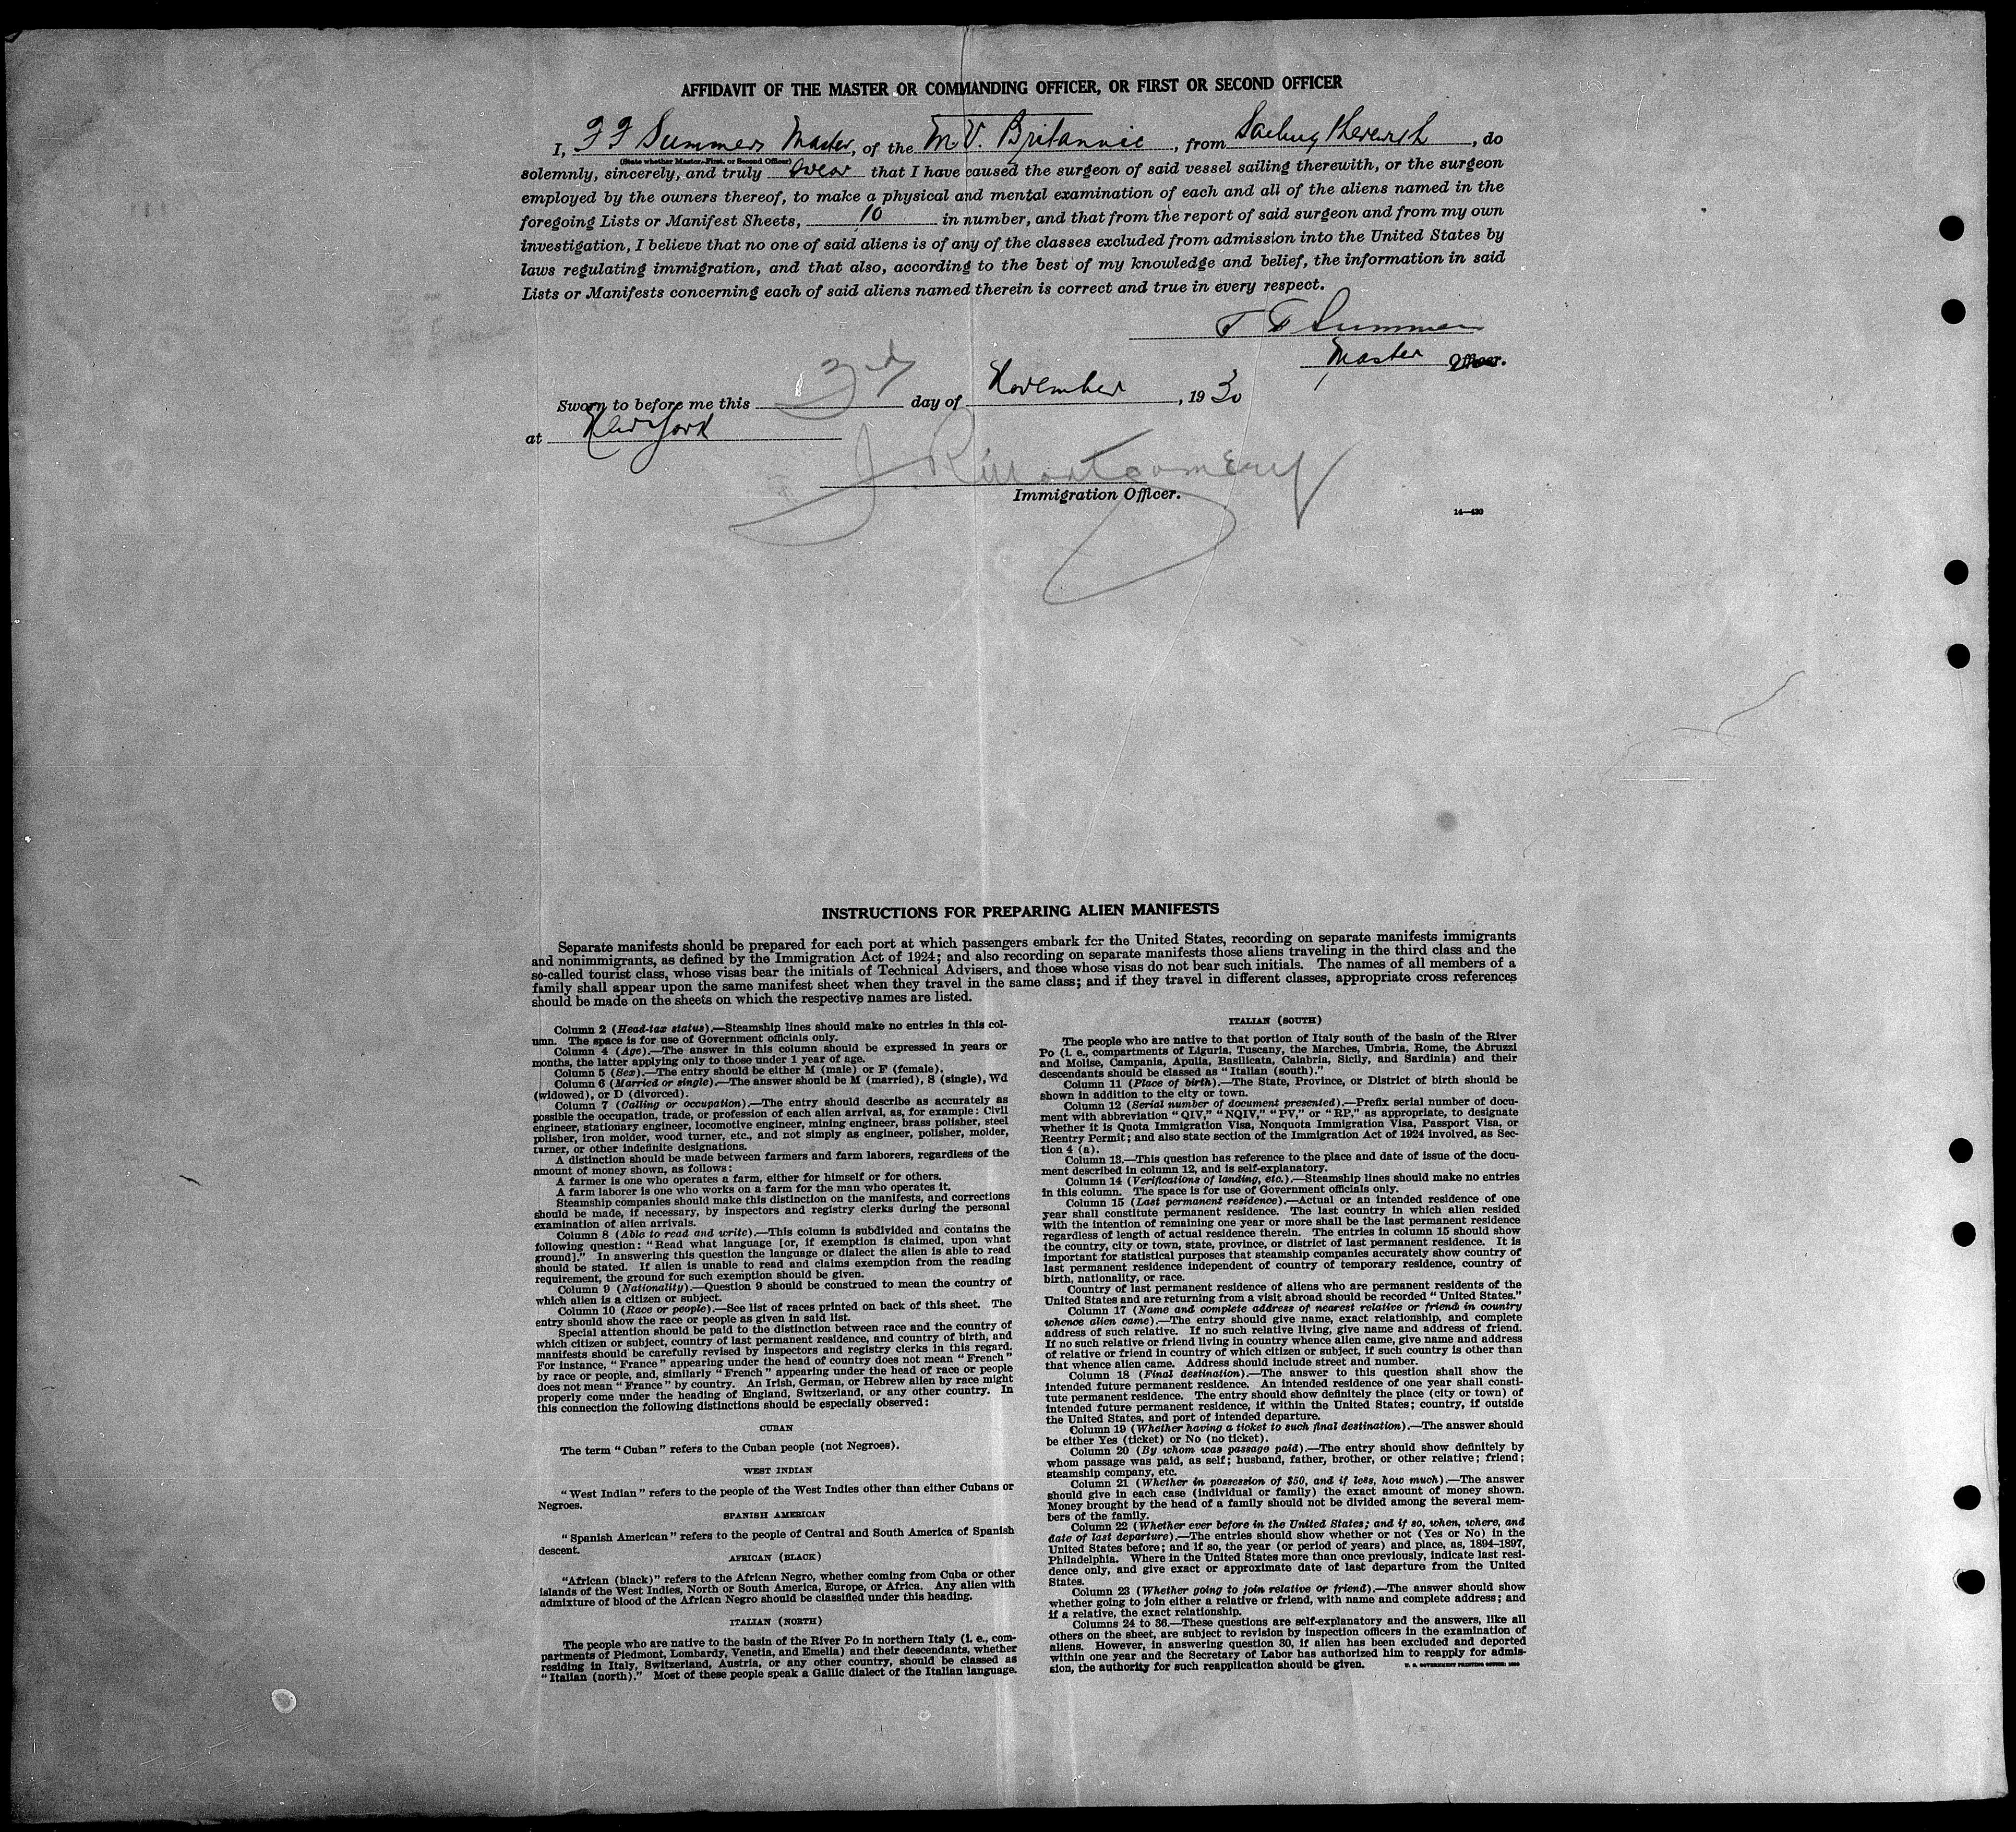 AFFIDAVIT OF THE MASTER OR COMMANDING OFFICER, OR FIRST OR SECOND OFFICER
I, F F Summers Master, of the M.V. Britannic, from Sailing therewith, do
(State whether Master, First, or Second Officer)
solemnly, sincerely, and truly swear that I have caused the surgeon of said vessel sailing therewith, or the surgeon
employed by the owners thereof, to make a physical and mental examination of each and all of the aliens named in the
foregoing Lists or Manifest Sheets, 10 in number, and that from the report of said surgeon and from my own
investigation, I believe that no one of said aliens is of any of the classes excluded from admission into the United States by
laws regulating immigration, and that also, according to the best of my knowledge and belief, the information in said
Lists or Manifests concerning each of said aliens named therein is correct and true in every respect.
F F Summers
Master Officer.
Sworn to before me this 3rd day of November, 1930
at New York
J. R. Montgomery
Immigration Officer.
14—430
INSTRUCTIONS FOR PREPARING ALIEN MANIFESTS
Separate manifests should be prepared for each port at which passengers embark for the United States, recording on separate manifests immigrants
and nonimmigrants, as defined by the Immigration Act of 1924; and also recording on separate manifests those aliens traveling in the third class and the
so-called tourist class, whose visas bear the initials of Technical Advisers, and those whose visas do not bear such initials. The names of all members of a
family shall appear upon the same manifest sheet when they travel in the same class; and if they travel in different classes, appropriate cross references
should be made on the sheets on which the respective names are listed.
Column 2 (Head-tax status).—Steamship lines should make no entries in this col-
umn. The space is for use of Government officials only.
Column 4 (Age).—The answer in this column should be expressed in years or
months, the latter applying only to those under 1 year of age.
Column 5 (Sex).—The entry should be either M (male) or F (female).
Column 6 (Married or single).—The answer should be M (married), S (single), Wd
(widowed), or D (divorced).
Column 7 (Calling or occupation).—The entry should describe as accurately as
possible the occupation, trade, or profession of each alien arrival, as, for example: Civil
engineer, stationary engineer, locomotive engineer, mining engineer, brass polisher, steel
polisher, iron molder, wood turner, etc., and not simply as engineer, polisher, molder,
turner, or other indefinite designations.
A distinction should be made between farmers and farm laborers, regardless of the
amount of money shown, as follows:
A farmer is one who operates a farm, either for himself or for others.
A farm laborer is one who works on a farm for the man who operates it.
Steamship companies should make this distinction on the manifests, and corrections
should be made, if necessary, by inspectors and registry clerks during the personal
examination of alien arrivals.
Column 8 (Able to read and write).—This column is subdivided and contains the
following question: "Read what language [or, if exemption is claimed, upon what
ground]." In answering this question the language or dialect the alien is able to read
should be stated. If alien is unable to read and claims exemption from the reading
requirement, the ground for such exemption should be given.
Column 9 (Nationality).—Question 9 should be construed to mean the country of
which alien is a citizen or subject.
Column 10 (Race or people).—See list of races printed on back of this sheet. The
entry should show the race or people as given in said list.
Special attention should be paid to the distinction between race and the country of
which citizen or subject, country of last permanent residence, and country of birth, and
manifests should be carefully revised by inspectors and registry clerks in this regard.
For instance, "France" appearing under the head of country does not mean "French"
by race or people, and, similarly "French" appearing under the head of race or people
does not mean "France" by country. An Irish, German, or Hebrew alien by race might
properly come under the heading of England, Switzerland, or any other country. In
this connection the following distinctions should be especially observed:
CUBAN
The term "Cuban" refers to the Cuban people (not Negroes).
WEST INDIAN
"West Indian" refers to the people of the West Indies other than either Cubans or
Negroes.
SPANISH AMERICAN
"Spanish American" refers to the people of Central and South America of Spanish
descent.
AFRICAN (BLACK)
"African (black)" refers to the African Negro, whether coming from Cuba or other
islands of the West Indies, North or South America, Europe, or Africa. Any alien with
admixture of blood of the African Negro should be classified under this heading.
ITALIAN (NORTH)
The people who are native to the basin of the River Po in northern Italy (i. e., com-
partments of Piedmont, Lombardy, Venetia, and Emelia) and their descendants, whether
residing in Italy, Switzerland, Austria, or any other country, should be classed as
"Italian (north)." Most of these people speak a Gallic dialect of the Italian language.
ITALIAN (SOUTH)
The people who are native to that portion of Italy south of the basin of the River
Po (i. e., compartments of Liguria, Tuscany, the Marches, Umbria, Rome, the Abruzzi
and Molise, Campania, Apulia, Basilicata, Calabria, Sicily, and Sardinia) and their
descendants should be classed as "Italian (south)."
Column 11 (Place of birth).—The State, Province, or District of birth should be
shown in addition to the city or town.
Column 12 (Serial number of document presented).—Prefix serial number of docu-
ment with abbreviation "QIV," "NQIV," "PV," or "RP," as appropriate, to designate
whether it is Quota Immigration Visa, Nonquota Immigration Visa, Passport Visa, or
Reentry Permit; and also state section of the Immigration Act of 1924 involved, as Sec-
tion 4 (a).
Column 13.—This question has reference to the place and date of issue of the docu-
ment described in column 12, and is self-explanatory.
Column 14 (Verifications of landing, etc.).—Steamship lines should make no entries
in this column. The space is for use of Government officials only.
Column 15 (Last permanent residence).—Actual or an intended residence of one
year shall constitute permanent residence. The last country in which alien resided
with the intention of remaining one year or more shall be the last permanent residence
regardless of length of actual residence therein. The entries in column 15 should show
the country, city or town, state, province, or district of last permanent residence. It is
important for statistical purposes that steamship companies accurately show country of
last permanent residence independent of country of temporary residence, country of
birth, nationality, or race.
Country of last permanent residence of aliens who are permanent residents of the
United States and are returning from a visit abroad should be recorded "United States."
Column 17 (Name and complete address of nearest relative or friend in country
whence alien came).—The entry should give name, exact relationship, and complete
address of such relative. If no such relative living, give name and address of friend.
If no such relative or friend living in country whence alien came, give name and address
of relative or friend in country of which citizen or subject, if such country is other than
that whence alien came. Address should include street and number.
Column 18 (Final destination).—The answer to this question shall show the
intended future permanent residence. An intended residence of one year shall consti-
tute permanent residence. The entry should show definitely the place (city or town) of
intended future permanent residence, if within the United States; country, if outside
the United States, and port of intended departure.
Column 19 (Whether having a ticket to such final destination).—The answer should
be either Yes (ticket) or No (no ticket).
Column 20 (By whom was passage paid).—The entry should show definitely by
whom passage was paid, as self; husband, father, brother, or other relative; friend;
steamship company, etc.
Column 21 (Whether in possession of $50, and if less, how much).—The answer
should give in each case (individual or family) the exact amount of money shown.
Money brought by the head of a family should not be divided among the several mem-
bers of the family.
Column 22 (Whether ever before in the United States; and if so, when, where, and
date of last departure).—The entries should show whether or not (Yes or No) in the
United States before; and if so, the year (or period of years) and place, as, 1894–1897,
Philadelphia. Where in the United States more than once previously, indicate last resi-
dence only, and give exact or approximate date of last departure from the United
States.
Column 23 (Whether going to join relative or friend).—The answer should show
whether going to join either a relative or friend, with name and complete address; and
if a relative, the exact relationship.
Columns 24 to 36.—These questions are self-explanatory and the answers, like all
others on the sheet, are subject to revision by inspection officers in the examination of
aliens. However, in answering question 30, if alien has been excluded and deported
within one year and the Secretary of Labor has authorized him to reapply for admis-
sion, the authority for such reapplication should be given.
U. S. GOVERNMENT PRINTING OFFICE: